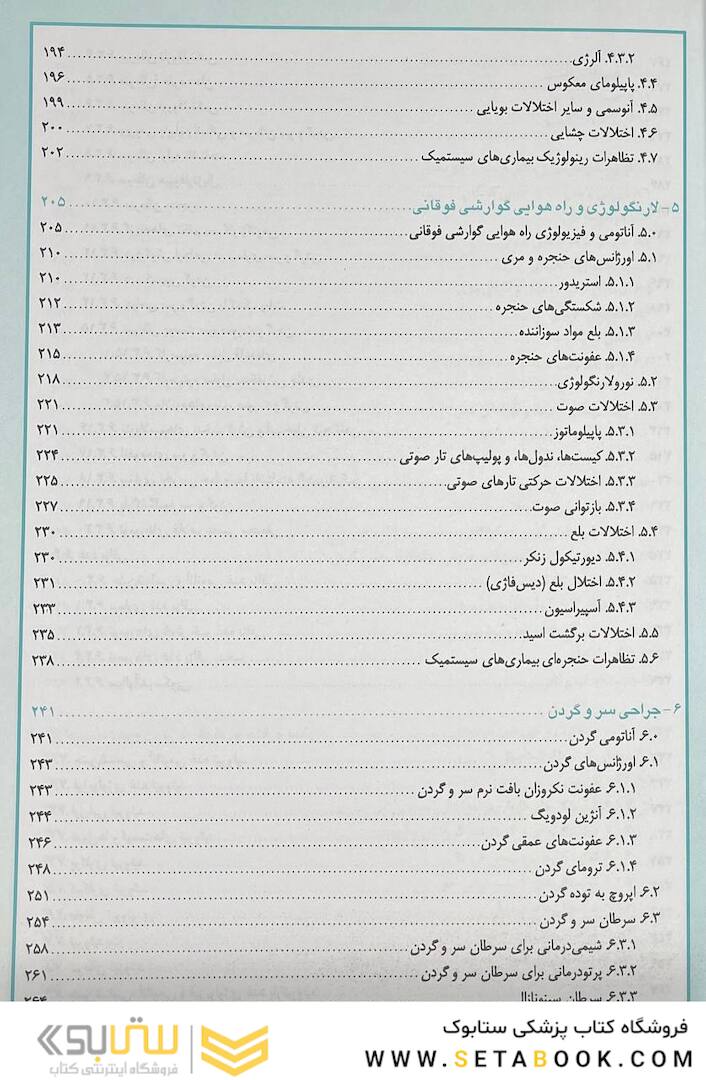 ۴.۳.۲. آلرژی ........ ۱۹۴
۴.۴. پاپیلومای معکوس ........ ۱۹۶
۴.۵. آنوسمی و سایر اختلالات بویایی ........ ۱۹۹
۴.۶. اختلالات چشایی ........ ۲۰۰
۴.۷. تظاهرات رینولوژیک بیماری‌های سیستمیک ........ ۲۰۲
۵- لارنگولوژی و راه هوایی گوارشی فوقانی ........ ۲۰۵
۵.۰. آناتومی و فیزیولوژی راه هوایی گوارشی فوقانی ........ ۲۰۵
۵.۱. اورژانس‌های حنجره و مری ........ ۲۱۰
۵.۱.۱. استریدور ........ ۲۱۰
۵.۱.۲. شکستگی‌های حنجره ........ ۲۱۲
۵.۱.۳. بلع مواد سوزاننده ........ ۲۱۳
۵.۱.۴. عفونت‌های حنجره ........ ۲۱۵
۵.۲. نورولارنگولوژی ........ ۲۱۸
۵.۳. اختلالات صوت ........ ۲۲۱
۵.۳.۱. پاپیلوماتوز ........ ۲۲۱
۵.۳.۲. کیست‌ها، ندول‌ها، و پولیپ‌های تار صوتی ........ ۲۲۴
۵.۳.۳. اختلالات حرکتی تارهای صوتی ........ ۲۲۵
۵.۳.۴. بازتوانی صوت ........ ۲۲۷
۵.۴. اختلالات بلع ........ ۲۳۰
۵.۴.۱. دیورتیکول زنکر ........ ۲۳۰
۵.۴.۲. اختلال بلع (دیس‌فاژی) ........ ۲۳۱
۵.۴.۳. آسپیراسیون ........ ۲۳۳
۵.۵. اختلالات برگشت اسید ........ ۲۳۵
۵.۶. تظاهرات حنجره‌ای بیماری‌های سیستمیک ........ ۲۳۸
۶- جراحی سر و گردن ........ ۲۴۱
۶.۰. آناتومی گردن ........ ۲۴۱
۶.۱. اورژانس‌های گردن ........ ۲۴۳
۶.۱.۱. عفونت نکروزان بافت نرم سر و گردن ........ ۲۴۳
۶.۱.۲. آنژین لودویگ ........ ۲۴۴
۶.۱.۳. عفونت‌های عمقی گردن ........ ۲۴۶
۶.۱.۴. ترومای گردن ........ ۲۴۸
۶.۲. اپروچ به توده گردن ........ ۲۵۱
۶.۳. سرطان سر و گردن ........ ۲۵۴
۶.۳.۱. شیمی‌درمانی برای سرطان سر و گردن ........ ۲۵۸
۶.۳.۲. پرتودرمانی برای سرطان سر و گردن ........ ۲۶۱
۶.۳.۳. سرطان سینونازال ........ ۲۶۴
فروشگاه کتاب پزشکی ستابوک
WWW.SETABOOK.COM
ستابوک
فروشگاه اینترنتی کتاب